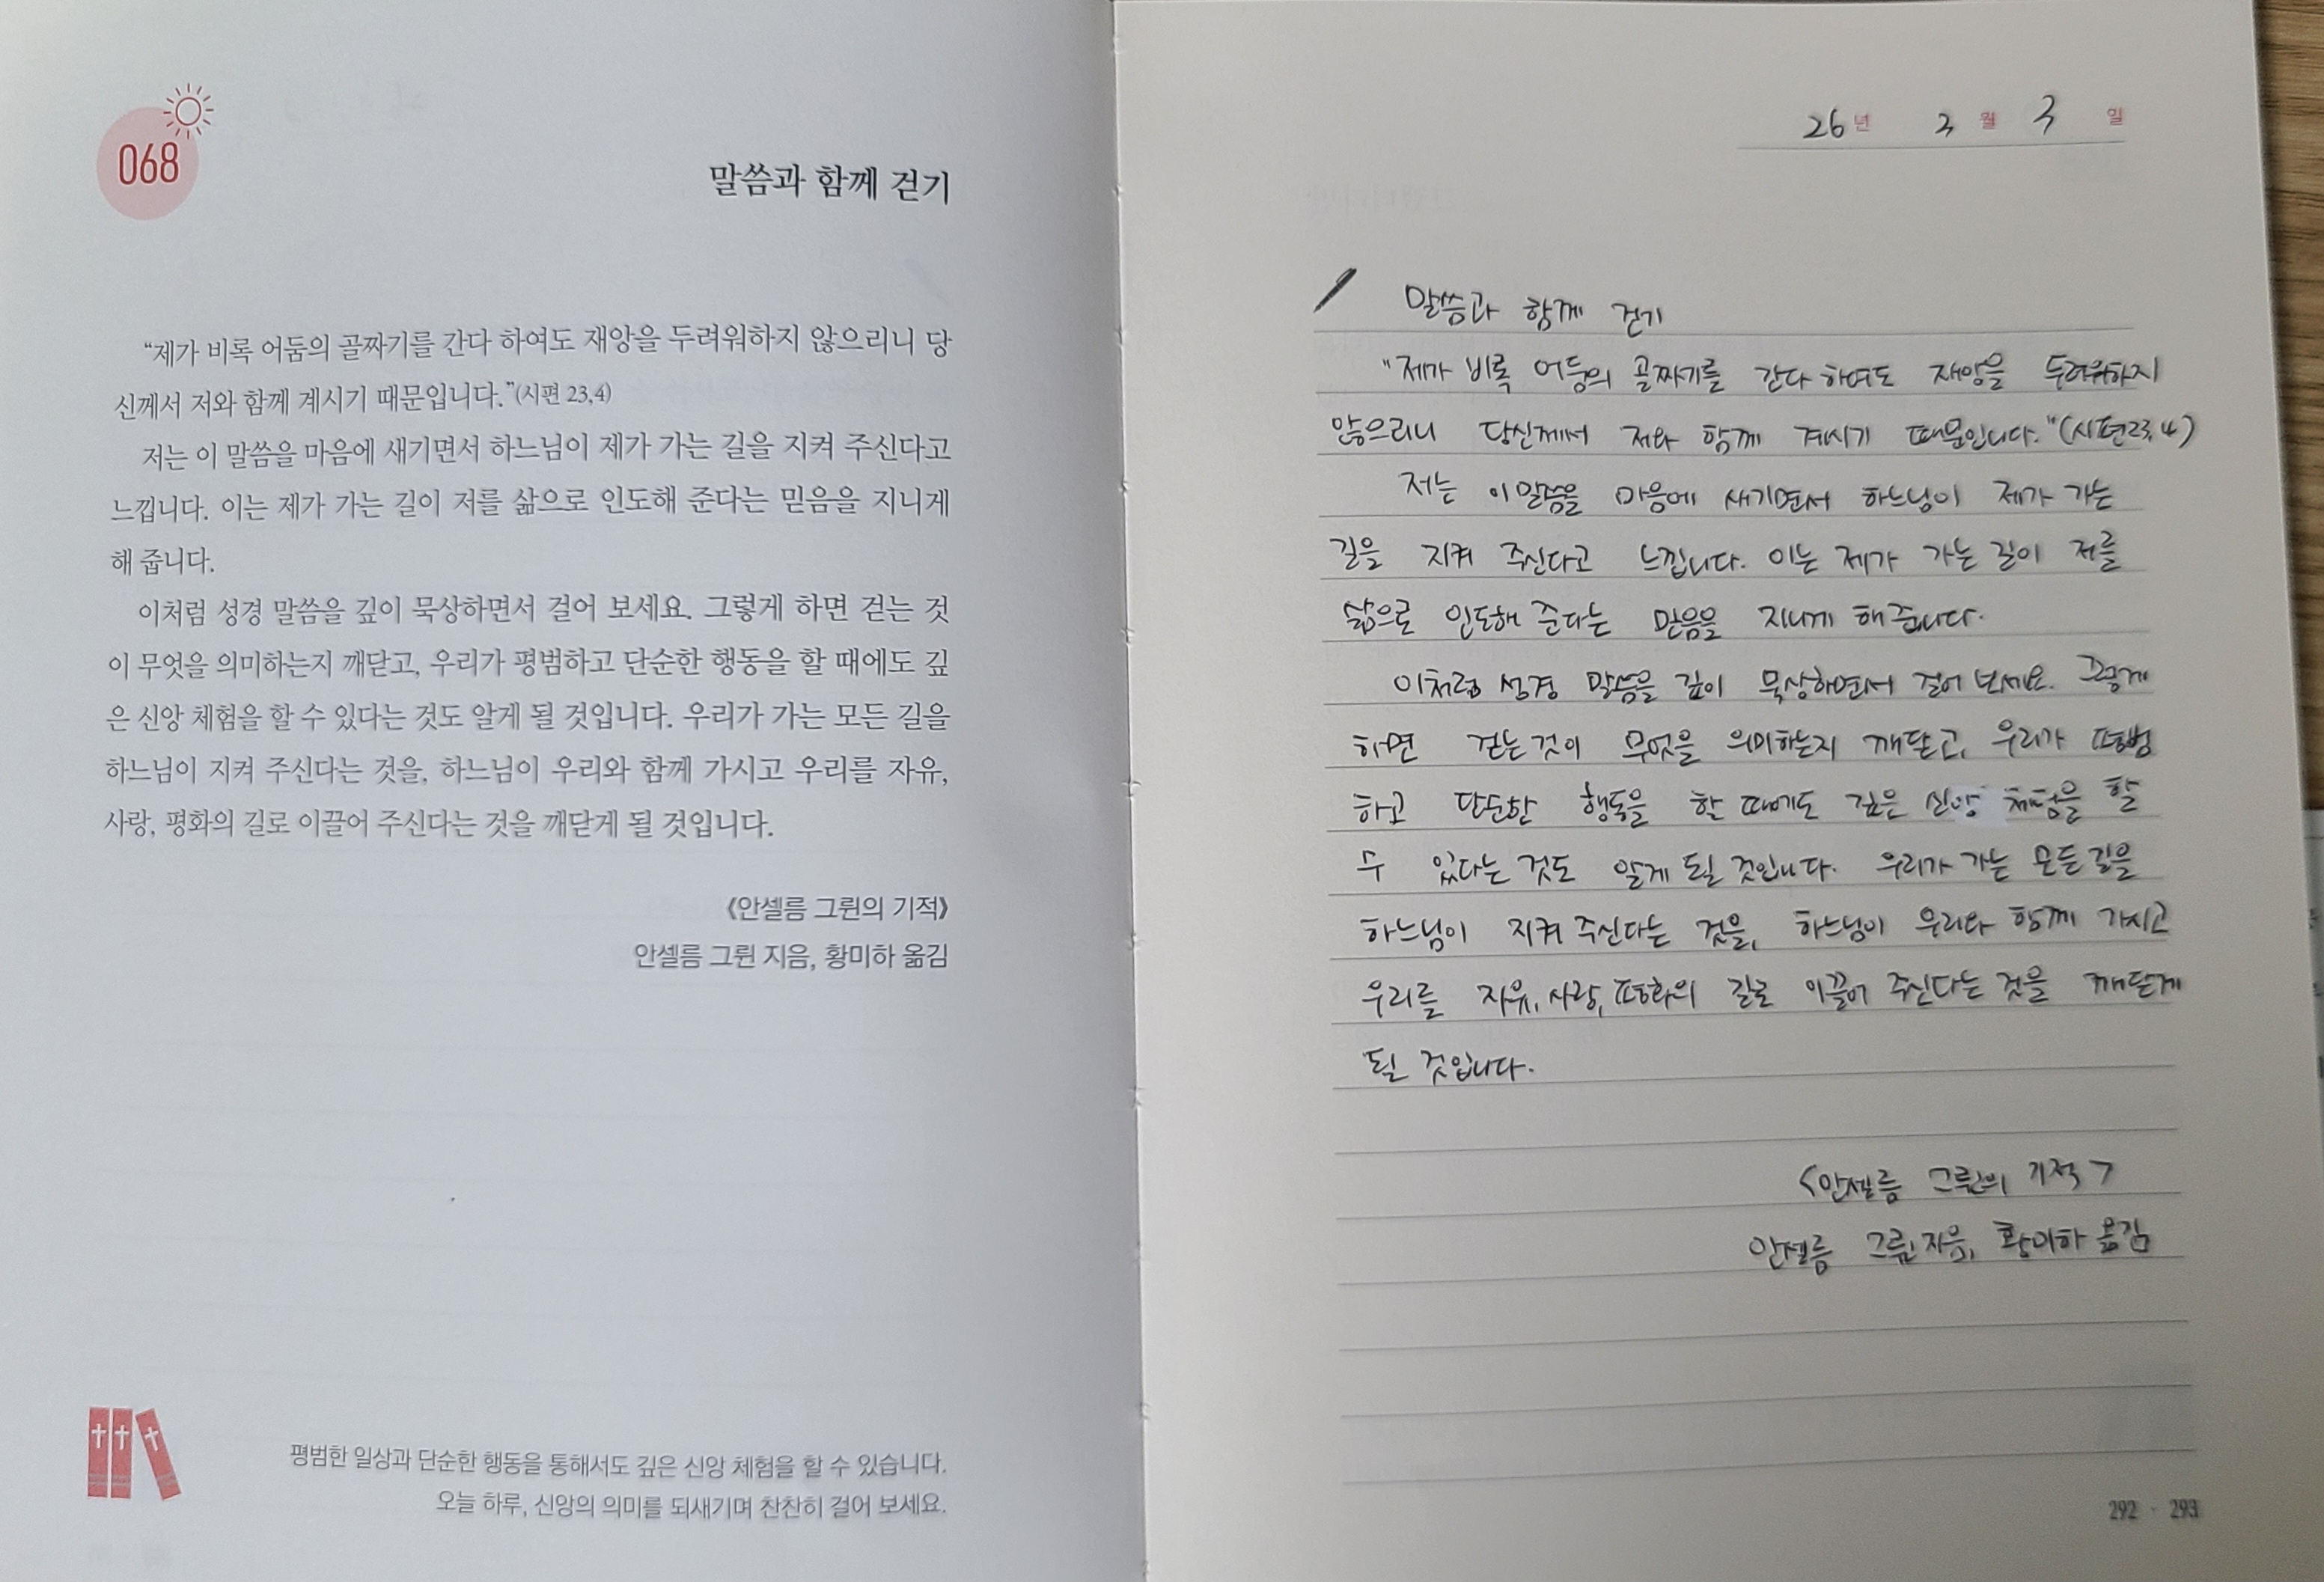 068
말씀과 함께 걷기
“제가 비록 어둠의 골짜기를 간다 하여도 재앙을 두려워하지 않으리니 당
신께서 저와 함께 계시기 때문입니다.”(시편 23,4)
저는 이 말씀을 마음에 새기면서 하느님이 제가 가는 길을 지켜 주신다고
느낍니다. 이는 제가 가는 길이 저를 삶으로 인도해 준다는 믿음을 지니게
해 줍니다.
이처럼 성경 말씀을 깊이 묵상하면서 걸어 보세요. 그렇게 하면 걷는 것
이 무엇을 의미하는지 깨닫고, 우리가 평범하고 단순한 행동을 할 때에도 깊
은 신앙 체험을 할 수 있다는 것도 알게 될 것입니다. 우리가 가는 모든 길을
하느님이 지켜 주신다는 것을, 하느님이 우리와 함께 가시고 우리를 자유,
사랑, 평화의 길로 이끌어 주신다는 것을 깨닫게 될 것입니다.
《안셀름 그륀의 기적》
안셀름 그륀 지음, 황미하 옮김
평범한 일상과 단순한 행동을 통해서도 깊은 신앙 체험을 할 수 있습니다.
오늘 하루, 신앙의 의미를 되새기며 찬찬히 걸어 보세요.
26년 3월 3일
말씀과 함께 걷기
"제가 비록 어둠의 골짜기를 간다 하여도 재앙을 두려워하지
않으리니 당신께서 저와 함께 계시기 때문입니다."(시편23,4)
저는 이 말씀을 마음에 새기면서 하느님이 제가 가는
길을 지켜 주신다고 느낍니다. 이는 제가 가는 길이 저를
삶으로 인도해 준다는 믿음을 지니게 해 줍니다.
이처럼 성경 말씀을 깊이 묵상하면서 걸어 보세요. 그렇게
하면 걷는 것이 무엇을 의미하는지 깨닫고, 우리가 평범
하고 단순한 행동을 할 때에도 깊은 신앙 체험을 할
수 있다는 것도 알게 될 것입니다. 우리가 가는 모든 길을
하느님이 지켜 주신다는 것을, 하느님이 우리와 함께 가시고
우리를 자유, 사랑, 평화의 길로 이끌어 주신다는 것을 깨닫게
될 것입니다.
<안셀름 그륀의 기적>
안셀름 그륀 지음, 황미하 옮김
292 · 293